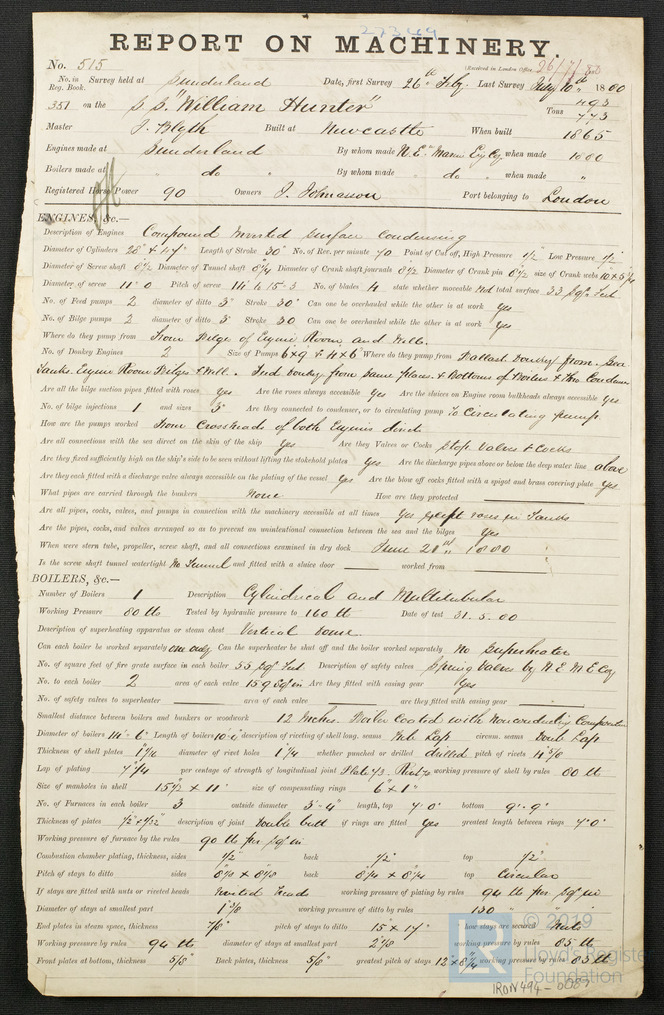 27349
REPORT ON MACHINERY.
No. 515 (Received in London Office 26/7/80
No. in Reg. Book. Survey held at Sunderland Date, first Survey 26th Feby. Last Survey July 10th 1880
351 on the S.S "William Hunter" Tons 493 773
Master J. Blyth Built at Newcastle When built 1865
Engines made at Sunderland By whom made N.E. Marine Eng Coy when made 1880
Boilers made at do By whom made do when made "
Registered Horse Power 90 Owners J. Johnasson Port belonging to London
ENGINES, &c.—
Description of Engines Compound Inverted Surface Condensing
Diameter of Cylinders 28" & 47" Length of Stroke 30" No. of Rev. per minute 70 Point of Cut off, High Pressure 1/2 Low Pressure 1/2
Diameter of Screw shaft 8 1/2 Diameter of Tunnel shaft 8 1/4 Diameter of Crank shaft journals 8 1/2 Diameter of Crank pin 8 1/2 size of Crank webs 10 x 5 1/4
Diameter of screw 11' 0 Pitch of screw 14' to 15'-3 No. of blades 4 state whether moveable Not total surface 33 Sqr Feet
No. of Feed pumps 2 diameter of ditto 3" Stroke 30" Can one be overhauled while the other is at work Yes
No. of Bilge pumps 2 diameter of ditto 3" Stroke 30 Can one be overhauled while the other is at work Yes
Where do they pump from From Bilges of Engine Room and Well.
No. of Donkey Engines 2 Size of Pumps 6 x 9 & 4 x 6 Where do they pump from Ballast Donkey from Sea
Tanks, Engine Room Bilges & Well. Feed Donkey from same places & Bottoms of Boilers & Condenser
Are all the bilge suction pipes fitted with roses Yes Are the roses always accessible Yes Are the sluices on Engine room bulkheads always accessible Yes
No. of bilge injections 1 and sizes 3" Are they connected to condenser, or to circulating pump To Circulating pump
How are the pumps worked From Crossheads of both Engines direct
Are all connections with the sea direct on the skin of the ship Yes Are they Valves or Cocks Stop Valves & Cocks
Are they fixed sufficiently high on the ship's side to be seen without lifting the stokehold plates Yes Are the discharge pipes above or below the deep water line above
Are they each fitted with a discharge valve always accessible on the plating of the vessel Yes Are the blow off cocks fitted with a spigot and brass covering plate Yes
What pipes are carried through the bunkers None How are they protected
Are all pipes, cocks, valves, and pumps in connection with the machinery accessible at all times Yes except roses in Tanks
Are the pipes, cocks, and valves arranged so as to prevent an unintentional connection between the sea and the bilges Yes
When were stern tube, propeller, screw shaft, and all connections examined in dry dock June 21st 1880
Is the screw shaft tunnel watertight No Tunnel and fitted with a sluice door worked from
BOILERS, &c.—
Number of Boilers 1 Description Cylindrical and Multitubular
Working Pressure 80 lb Tested by hydraulic pressure to 160 lb Date of test 31. 5. 80
Description of superheating apparatus or steam chest Vertical Dome.
Can each boiler be worked separately one only Can the superheater be shut off and the boiler worked separately No Superheater
No. of square feet of fire grate surface in each boiler 55 Sqr Feet Description of safety valves Spring Valves by N E M E Coy
No. to each boiler 2 area of each valve 15.9 Sqr in Are they fitted with easing gear Yes
No. of safety valves to superheater area of each valve are they fitted with easing gear
Smallest distance between boilers and bunkers or woodwork 12 Inches. Boiler Coated with Nonconducting Composition
Diameter of boilers 14'-6" Length of boilers 10'-1" description of riveting of shell long. seams Treb Lap circum. seams Doub Lap
Thickness of shell plates diameter of rivet holes 1 1/4 whether punched or drilled drilled pitch of rivets 4 5/8
Lap of plating 7 3/4 per centage of strength of longitudinal joint Plate 73. Rivet 70 working pressure of shell by rules 80 lb
Size of manholes in shell 15 1/2 x 11" size of compensating rings 6" x 1"
No. of Furnaces in each boiler 3 outside diameter 3'-4" length, top 7'-0" bottom 9'-9"
Thickness of plates 1/2 & 17/32" description of joint Double butt if rings are fitted Yes greatest length between rings 7'-0"
Working pressure of furnace by the rules 90 lb per sqr in
Combustion chamber plating, thickness, sides 1/2" back 1/2" top 1/2"
Pitch of stays to ditto sides 8 5/8 x 8 5/8 back 8 1/4 x 8 1/4 top Circular
If stays are fitted with nuts or riveted heads Riveted Heads working pressure of plating by rules 94 lb per sqr in
Diameter of stays at smallest part 1 3/8 working pressure of ditto by rules 130
End plates in steam space, thickness 7/8" pitch of stays to ditto 15" x 17" how stays are secured Nuts
Working pressure by rules 94 lb diameter of stays at smallest part 2 5/8 working pressure by rules 85 lb
Front plates at bottom, thickness 5/8" Back plates, thickness 5/8" greatest pitch of stays 12" x 8 1/4 working pressure by rules 83 lb
© 2019
LR
Lloyd's Register
Foundation
IRON494 - 0087